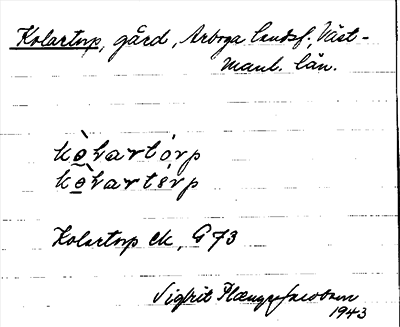 Kolartorp, gård, Arboga landsf., Väst-
manl. län.
kò̱ƚartórp
kò̱ƚartórp
Kolartorp ek, G 73
Sigfrit Plænge Jacobson
1943